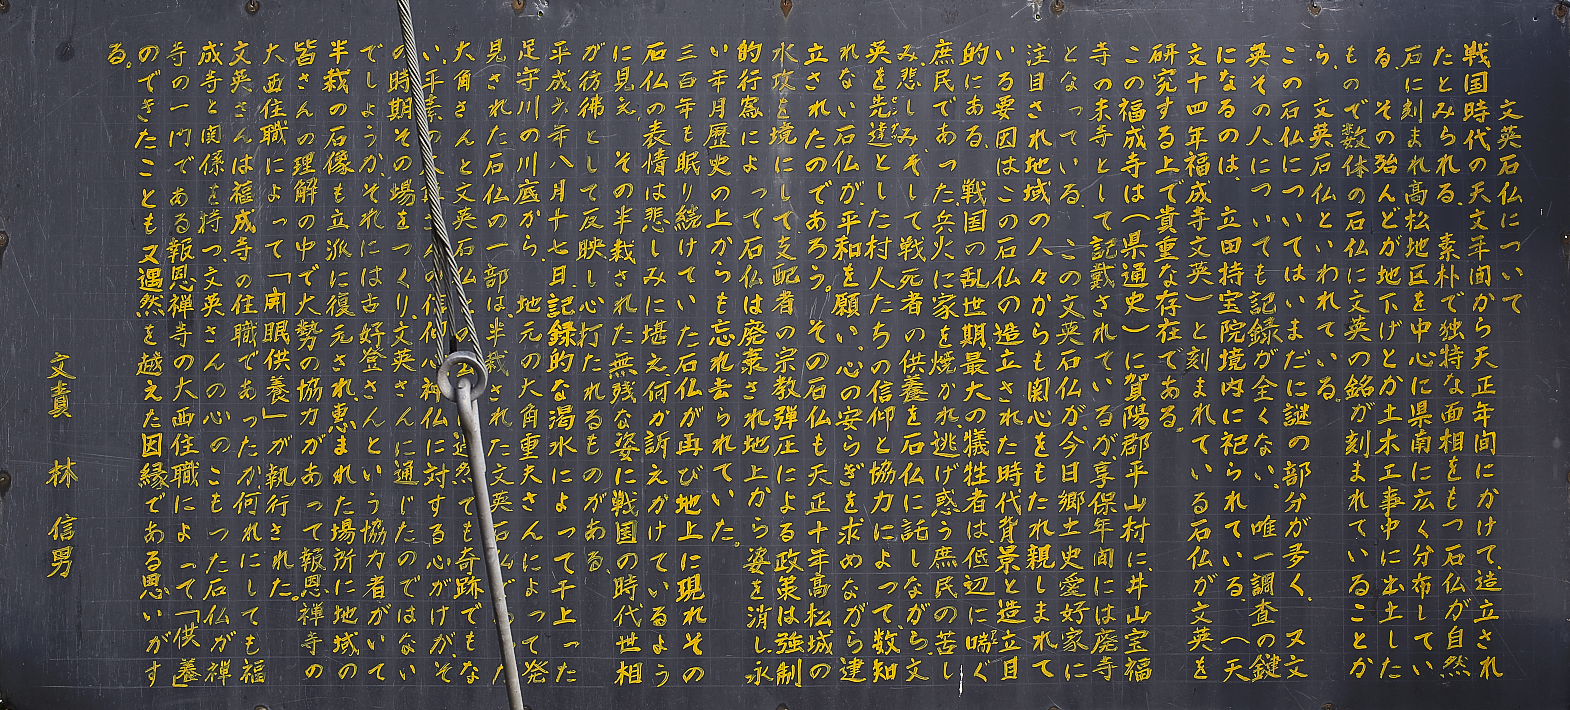 文英石仏について
戦国時代の天文年間から天正年間にかけて、造立され
たとみられる。素朴で独特な面相をもつ石仏が自然
石に刻まれ高松地区を中心に県南に広く分布してい
る。その殆んどが地下げとか土木工事中に出土した
もので数体の石仏に文英の銘が刻まれていることか
ら、文英石仏といわれている。
この石仏についてはいまだに謎の部分が多く、又文
英その人についても記録が全くない、唯一調査の鍵
になるのは、立田持宝院境内に祀られている。(天
文十四年福成寺文英)と刻まれている石仏が文英を
研究する上で貴重な存在である。
この福成寺は(県通史)に賀陽郡平山村に、井山宝福
寺の末寺として記載されているが、享保年間には廃寺
となっている。この文英石仏が、今日郷土史愛好家に
注目され地域の人々からも関心をもたれ親しまれて
いる要因はこの石仏の造立された時代背景と造立目
的にある。戦国の乱世期、最大の犠牲者は、低辺に喘ぐ
庶民であった、兵火に家を焼かれ、逃げ惑う庶民の苦し
み、悲しみ、そして戦死者の供養を石仏に託しながら、文
英を先達とした村人たちの信仰と協力によって、数知
れない石仏が、平和を願い、心の安らぎを求めながら建
立されたのであろう。その石仏も天正十年高松城の
水攻を境にして支配者の宗教弾圧による政策は強制
的行為によって石仏は廃棄され地上から姿を消し、永
い年月歴史の上からも忘れ去られていた。
三百年も眠り続けていた石仏が再び地上に現れその
石仏の表情は悲しみに堪え何か訴えかけているよう
に見え、その半裁された無残な姿に戦国の時代世相
が彷彿として反映し心打たれるものがある。
平成六年八月十七日、記録的な渇水によって干上った
足守川の川底から、地元の大角重夫さんによって発
見された石仏の一部は、半裁された文英石仏で
大角さんと文英石仏との は偶然でも奇跡でもな
い、平素の大 さんの信仰心神仏に対する心がけが、そ
の時期、その場をつくり、文英さんに通じたのではない
でしょうか、それには古好登さんという協力者がいて
半裁の石像も立派に復元され、恵まれた場所に地域の
皆さんの理解の中で大勢の協力があって報恩禅寺の
大西住職によって「開眼供養」が執行された。
文英さんは福成寺の住職であったか、何れにしても福
成寺と関係を持つ、文英さんの心のこもった石仏が禅
寺の一門である報恩禅寺の大西住職によって「供養」
のできたことも又遇然を越えた因縁である思いがす
る。
文責 林 信男